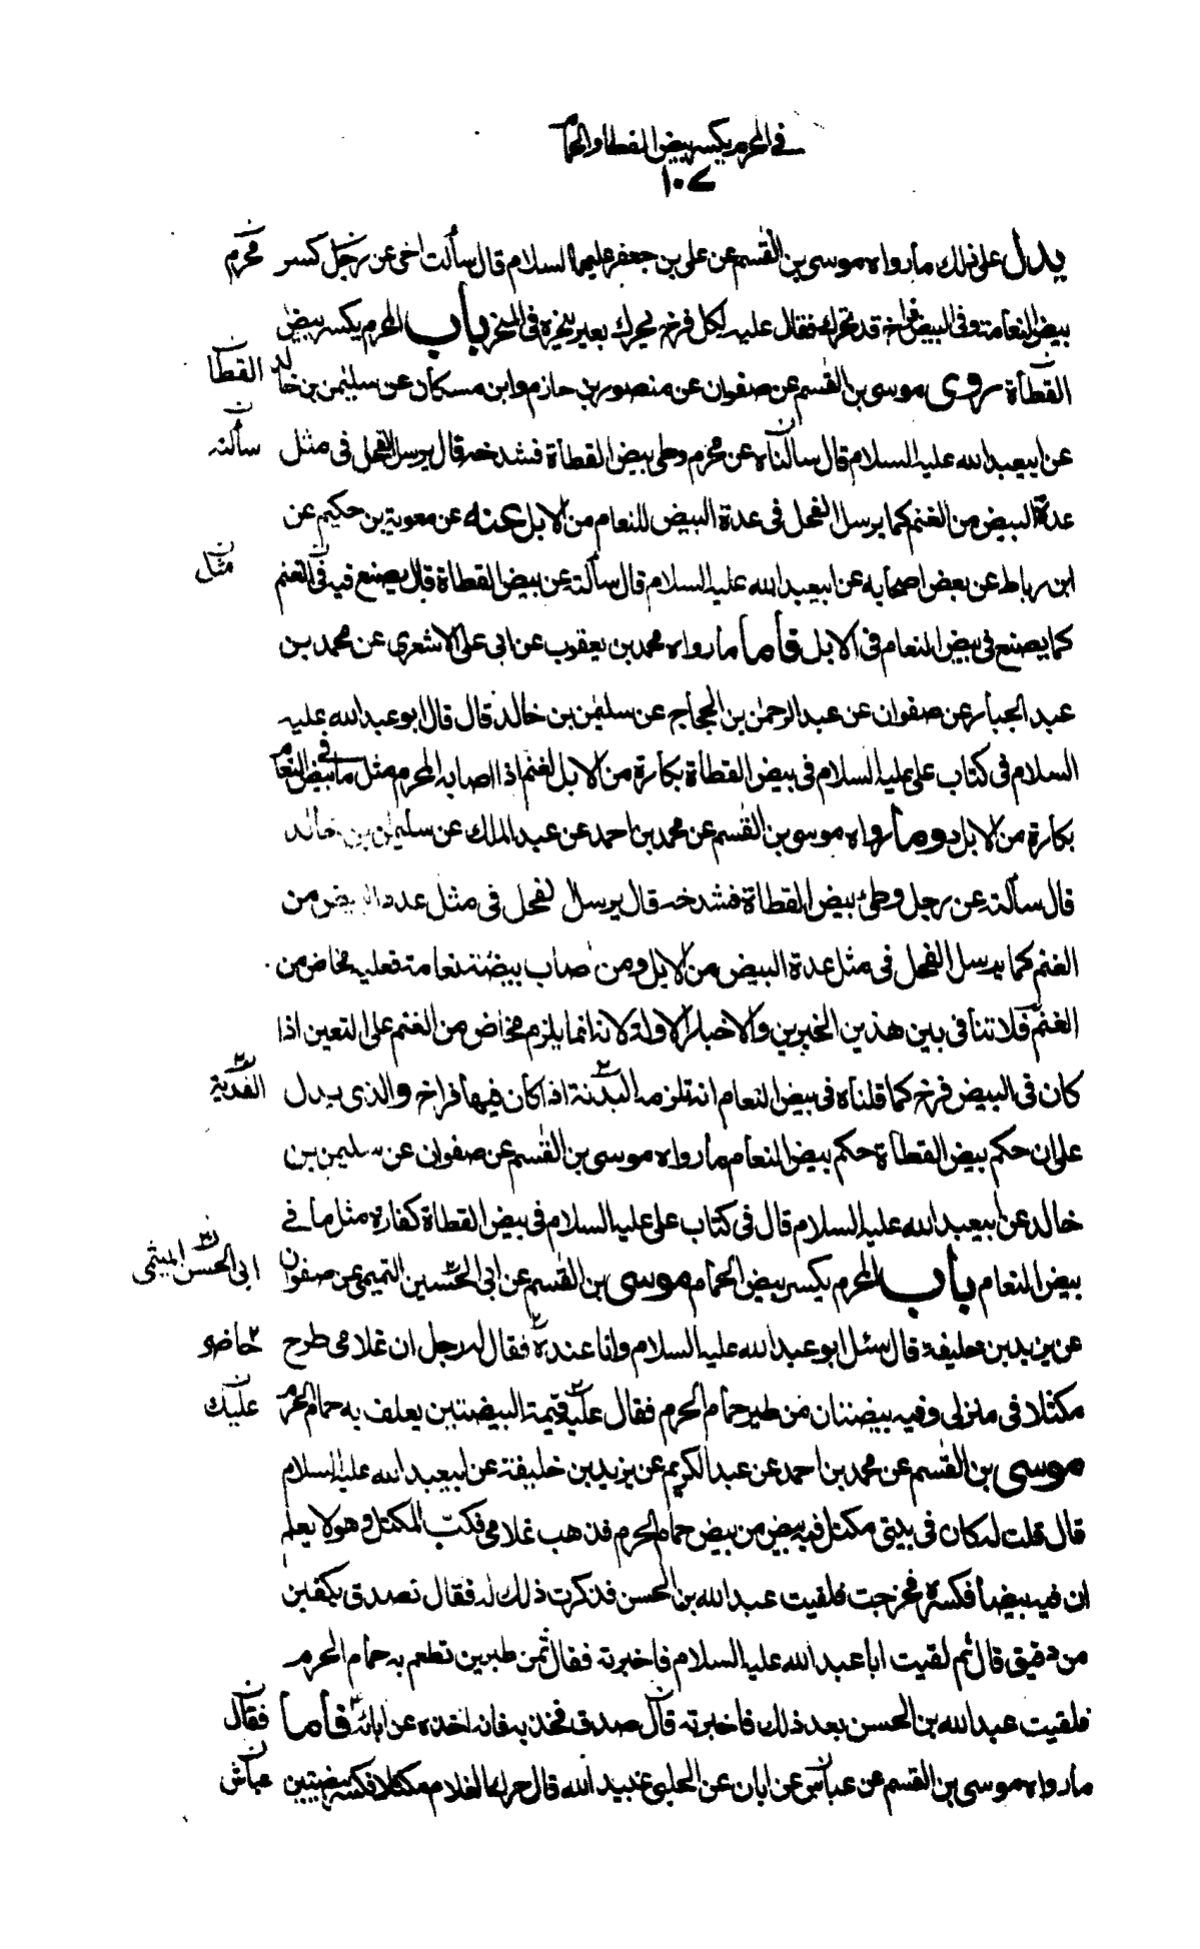 في المحرم يكسر بيض القطا والحمام
١٠٧
يدل على ذلك ما رواه موسى بن القسم عن على بن جعفر عليهما السلام قال سألت اخى عن رجل كسر
محرم
بيض النعامة وفى البيض فراخ قد تحرك فقال عليه لكل فرخ تحرك بعير ينحره فى المنحر باب المحرم يكسر بيض
القطاة روى موسى بن القسم عن صفوان عن منصور بن حازم وابن مسكان عن سليمن بن خالد
القطا
عن ابيعبدالله عليه السلام قال سألناه عن محرم وطى بيض القطاة فشدخه قال يرسل الفحل فى مثل
سألته
عدة البيض من الغنم كما يرسل الفحل فى عدة البيض للنعام من الابل عنه عن معوية بن حكيم عن
ابن رباط عن بعض اصحابه عن ابيعبدالله عليه السلام قال سألته عن بيض القطاة قال يصنع فيه فى الغنم
مثل
كما يصنع فى بيض النعام فى الابل فأما ما رواه محمد بن يعقوب عن ابى على الاشعرى عن محمد بن
عبد الجبار عن صفوان عن عبدالرحمن بن الحجاج عن سليمن بن خالد قال قال ابو عبدالله عليه
السلام فى كتاب على عليه السلام فى بيض القطاة بكارة من الابل لغنم اذا اصابه المحرم مثل ما فى بيض النعام
بكارة من الابل وما رواه موسى بن القسم عن محمد بن احمد عن عبد الملك عن سليمن بن خالد
قال سألته عن رجل وطئ بيض القطاة فشدخه قال يرسل الفحل فى مثل عدد البيض من
الغنم كما يرسل الفحل فى مثل عدة البيض من الابل ومن اصاب بيضة نعامة فعليه مخاض من
الغنم فلا تنافى بين هذين الخبرين والاخبار الاولة لانه انما يلزم مخاض من الغنم على التعين اذا
كان فى البيض فرخ كما قلناه فى بيض النعام انه تلزمه البدنة اذا كان فيها فراخ والذى يدل
الفدية
على ان حكم بيض القطاة حكم بيض النعام ما رواه موسى بن القسم عن صفوان عن سليمن بن
خالد عن ابيعبدالله عليه السلام قال فى كتاب على عليه السلام فى بيض القطاة كفارة مثل ما فى
بيض النعام باب المحرم يكسر بيض الحمام موسى بن القسم عن ابى الحسين التميمى عن صفوان
ابى الحسن الميثمى
عن يزيد بن خليفة قال سئل ابو عبدالله عليه السلام وانا عنده فقال له رجل ان غلامى طرح
حاضر
مكتلا فى منزلى وفيه بيضتان من طير حمام الحرم فقال عليه قيمة البيضتين يعلف به حمام الحرم
عليك
موسى بن القسم عن محمد بن احمد عن عبد الكريم عن يزيد بن خليفة عن ابيعبدالله عليه السلام
قال قلت له كان فى بيتى مكتل فيه بيض من بيض حمام الحرم فذهب غلامى فكب المكتل وهو لا يعلم
ان فيه بيضا فكسره فخرجت فلقيت عبدالله بن الحسن فذكرت ذلك له فقال تصدق بكفين
من دقيق قال ثم لقيت ابا عبدالله عليه السلام فاخبرته فقال ثمن طيرين تطعم به حمام الحرم
فلقيت عبدالله بن الحسن بعد ذلك فاخبرته قال صدق فخذ به فانه اخذه عن ابائه فأما
فقال
ما رواه موسى بن القسم عن عباس عن ابان عن الحلبى عبيد الله قال حرك الغلام مكتلا فكسر بيضتين
عباش